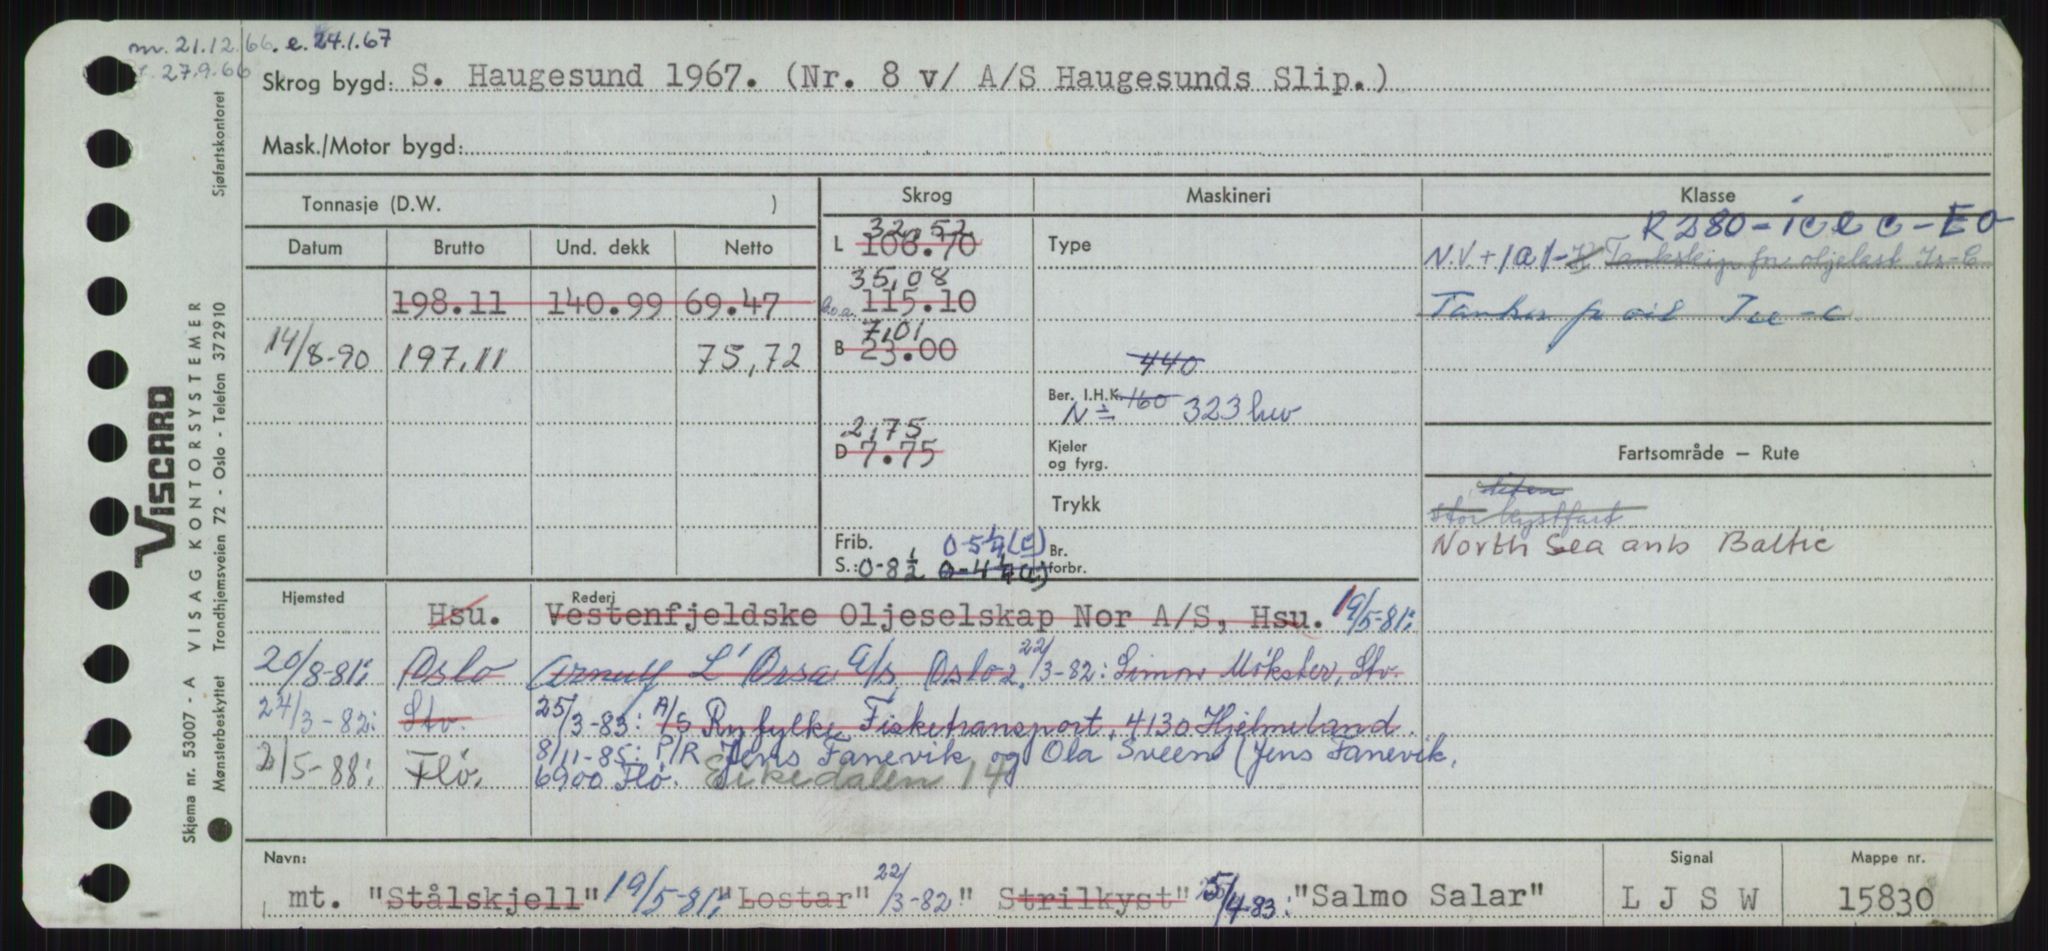 m. 21.12.66. e. 24.1.67
27.9.66
Skrog bygd: S. Haugesund 1967. (Nr. 8 v/ A/S Haugesunds Slip.)
Mask./Motor bygd:
Tonnasje (D.W. )
Skrog
Maskineri
Klasse
Datum
Brutto
Und. dekk
Netto
198.11 140.99 69.47
14/8-90 197,11 75,72
32,52
L 106.70
35,08
l.o.a. 115.10
7,01
B 23.00
2,75
D 7.75
Frib. 0-5¼(E)
S.: 0-8½ 0-4¼
Type
440
Ber. I.H.K. 160
N = 323 hw
Kjeler
og fyrg.
Trykk
Br.
forbr.
R280-ice c-E0
N.V.+1A1- Tankskip for oljelast Is-C
Tanker f oil Ice-c
Fartsområde – Rute
liten
stor kystfart
North Sea and Baltic
Hjemsted
Rederi
Hsu. Vestenfjeldske Oljeselskap Nor A/S, Hsu. 19/5-81:
20/8-81: Oslo Arnulf L'Orsa A/S Oslo 2. 22/3-82: Simon Møkster, Stv.
24/3-82: Stv. 25/3-83: A/S Ryfylke Fisketransport, 4130 Hjelmeland
8/11-85: P/R Jens Fanevik og Ola Sveen (Jens Fanevik,
2/5-88: Flø. 6900 Flø. Eikedalen 14
Navn:
mt. "Stålskjell" 19/5-81: "Lostar" 22/3-82 "Strilkyst" 5/4-83: "Salmo Salar"
Signal
L J S W
Mappe nr.
15830
VISCARD
Skjema nr. 53007 - A VISAG KONTORSYSTEMER
Mønsterbeskyttet Trondhjemsveien 72 - Oslo - Telefon 372910
Sjøfartskontoret